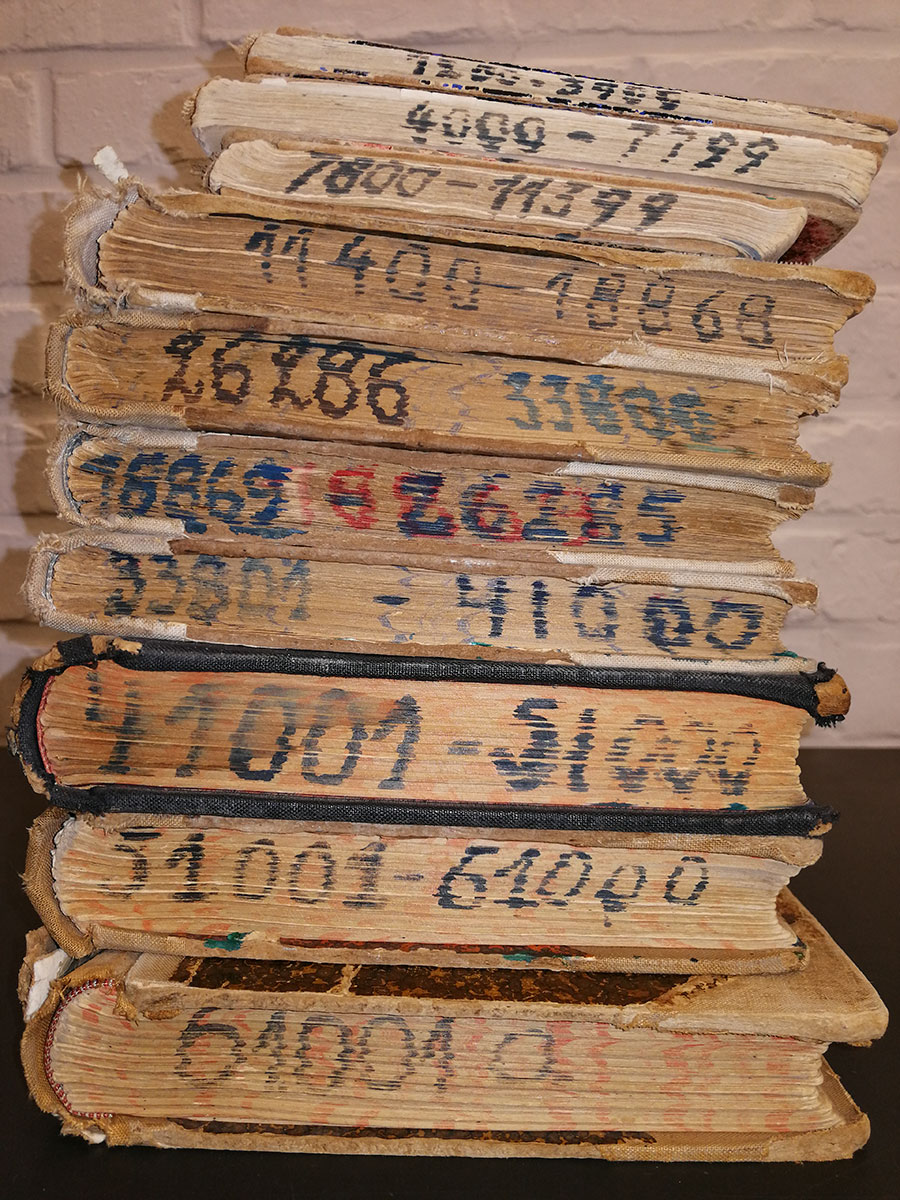 1200-3999
4000 - 7799
7800-11399
11400-18868
26286 33800
18869 26285
33801 - 41000
41001-51000
51001-61000
61001 a